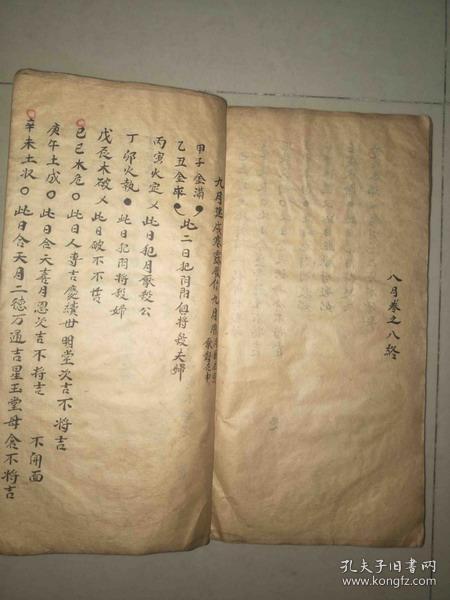 八月卷之八終
九月建戌寒露
甲子金滿
乙丑金平
此二日犯陰陽
將殺夫婦
丙寅火定 乂 此日犯月厭殺公
丁卯火執 ● 此日犯陰將殺婦
戊辰木破 乂 此日破不不貴
己巳木危 ○ 此日人專吉慶續世明堂次吉不將吉
庚午土成 ○ 此日合天喜月恩次吉不將吉 不開面
辛未土收 ○ 此日合天月二德万通吉星玉堂母倉不將吉
孔夫子旧书网
www.kongfz.com